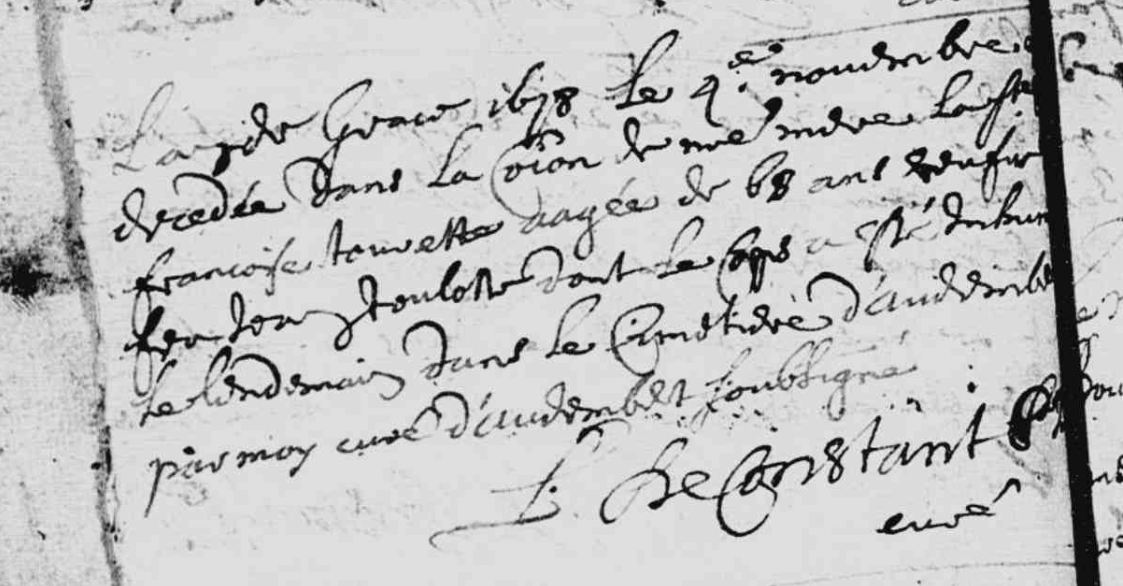 L'an de Grace 1678 le 4.e novembre
decedée dans la coïon de nre mere la Ste
francoise tourette aagée de 68 ans veufve
feu Jean toulotte dont le corps a esté inhu
le lendemain dans le Cimetiere d'audembe
par moy curé d'audembert soubsigné
F. Constant
curé